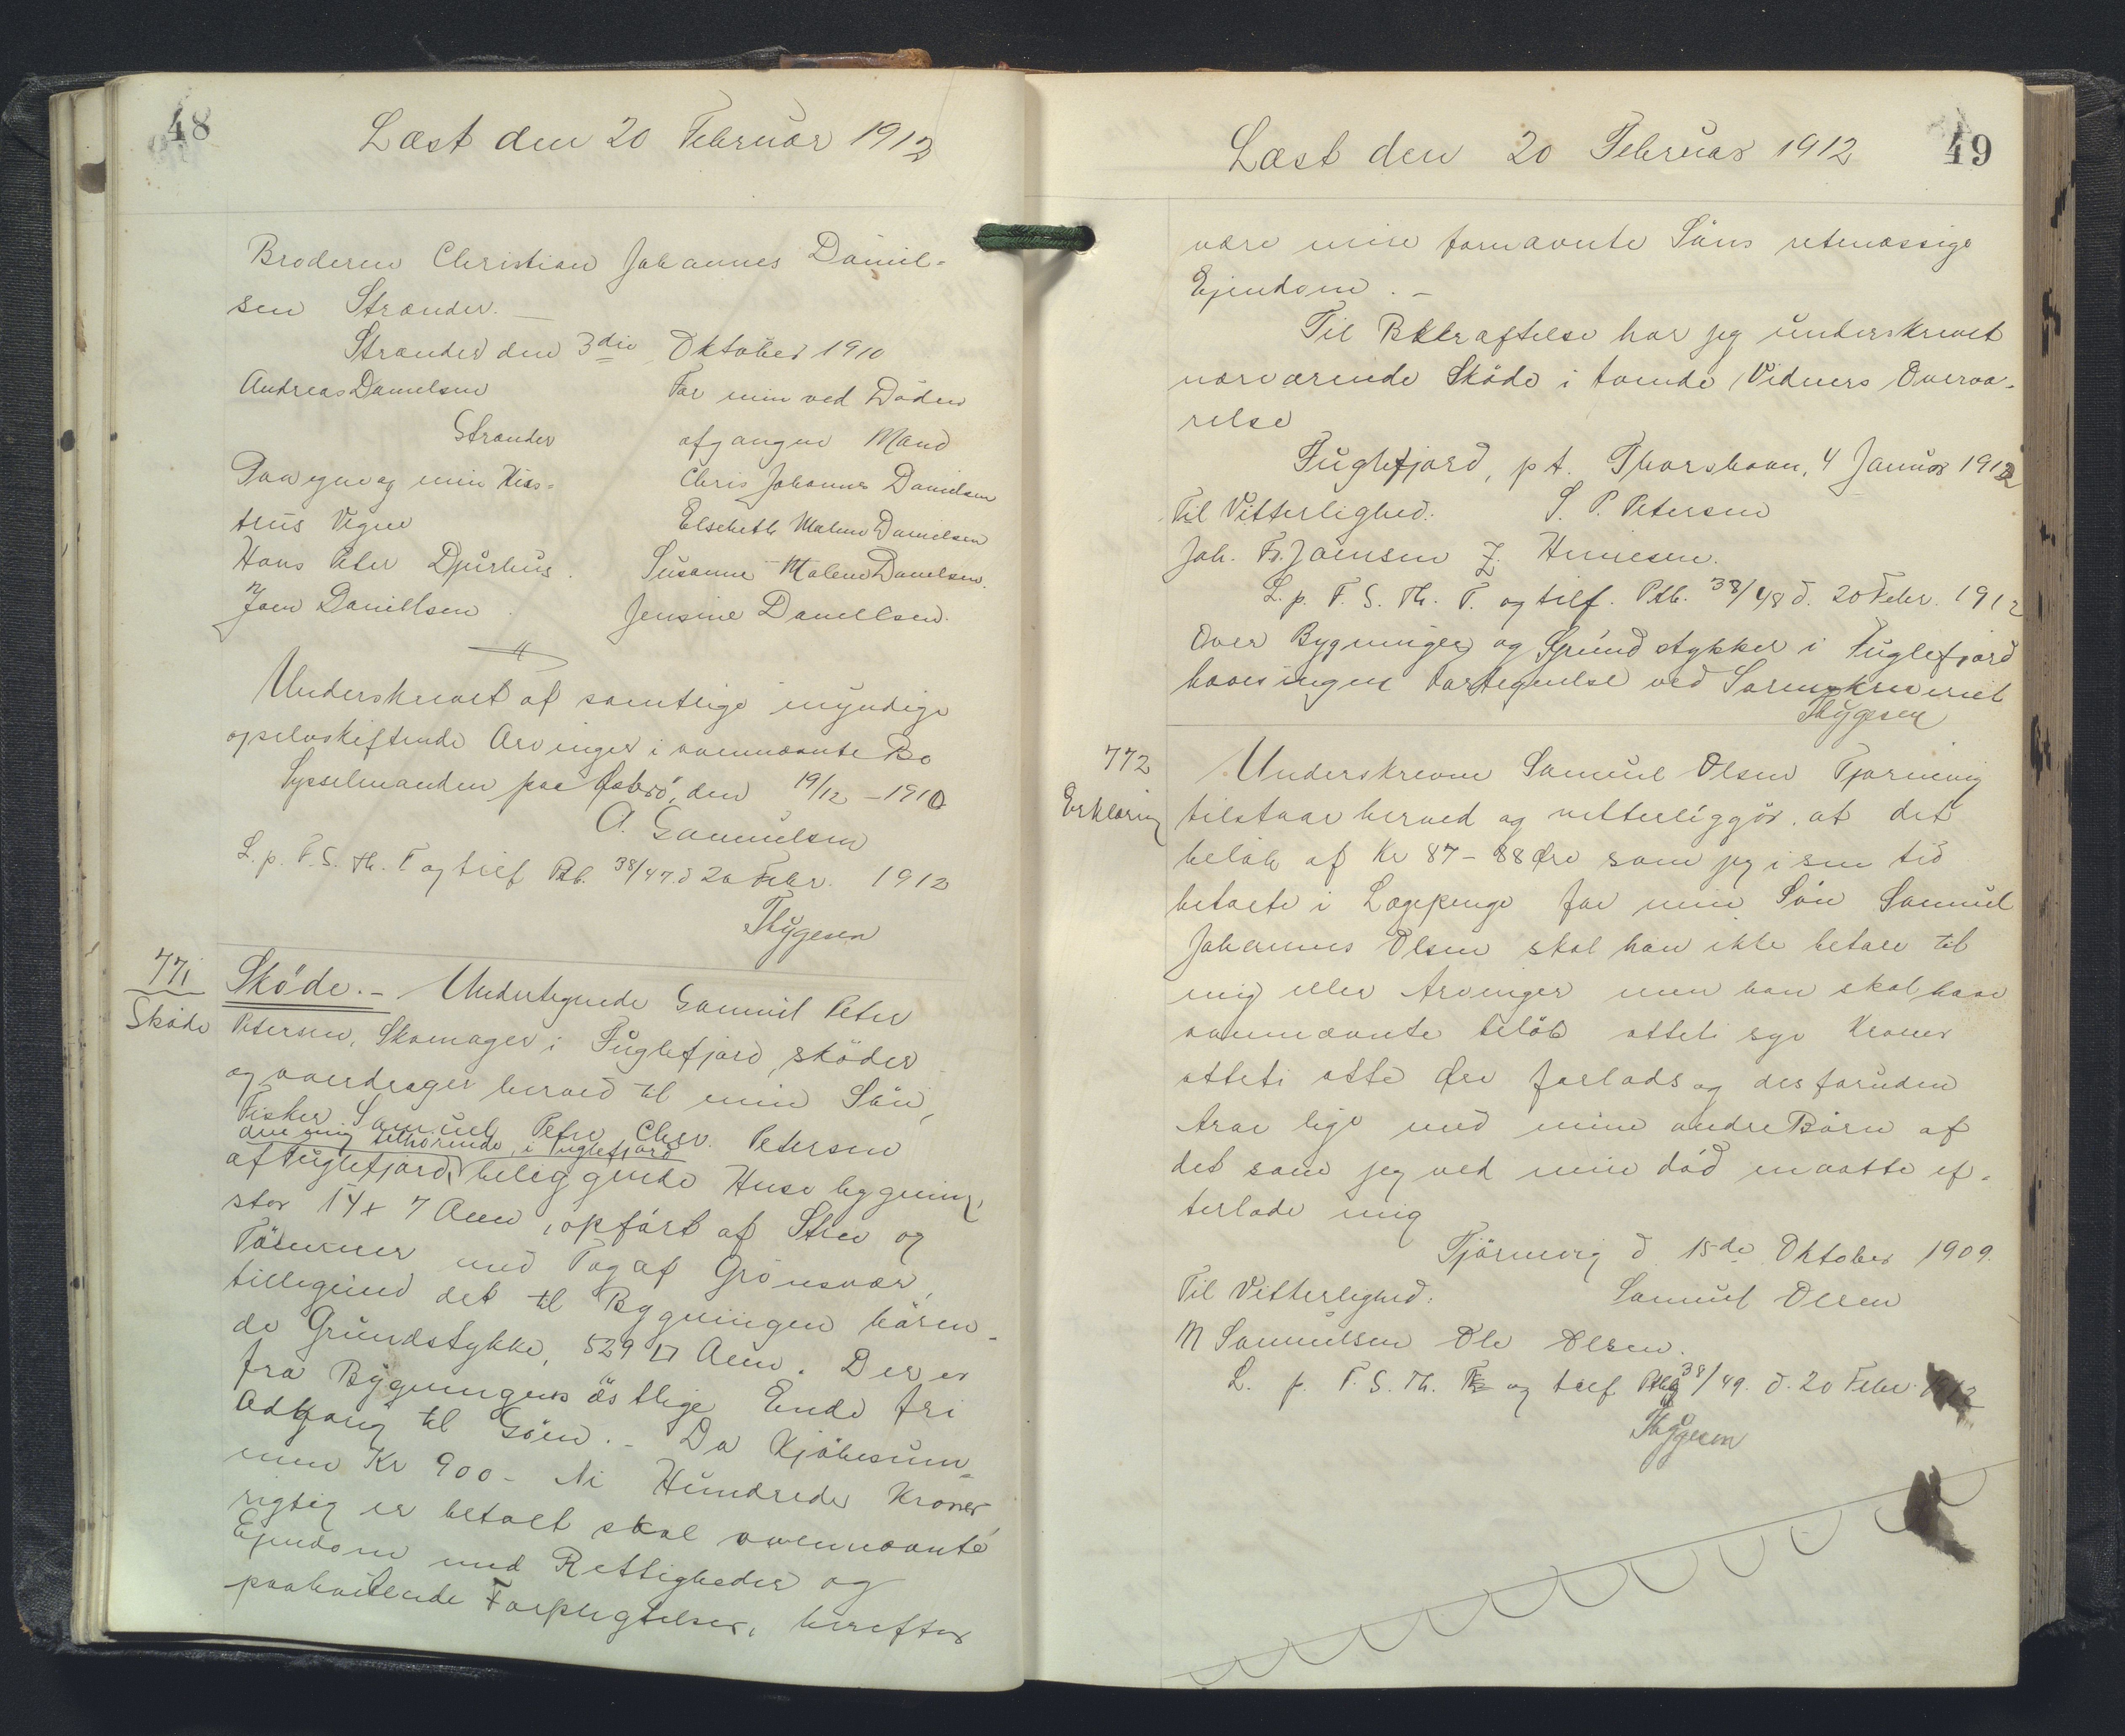 48
Læst den 20 Februar 1912
Broderen Christian Johannes Daniel-
sen Strænder. —
Strænder den 3die Oktober 1910
Andreas Danielsen
Strænder
Paa egne og min Kias-
trus Vegne
Hans Peter Djurhus.
Joen Daniellsen.
For min ved Döden
afgangne Mand
Chris Johannes Danielsen
Elsebeth Malene Danielsen
Susanne Malene Danielsen.
Jensine Daniellsen.
Underskrevet af samtlige myndige
og selvskiftende Arvinger i ovennævnte Bo
Sysselmanden paa Österö, den 19/12 - 1910
A. Samuelsen
L. p. F. S. Th. T og tilf Ptb. 38/47. d 20 Febr. 1912
Thygesen
771
Sköde
Sköde. - Undertegnede Samuel Peter
Petersen, Skomager i Fuglefjord, sköder
og overdrager herved til min Sön,
Fisker Samuel Peter Chr. Petersen
den mig tilhörende, i Fuglefjord
af Fuglefjord, beliggende Huse bygning,
stor 14 x 7 Alen, opfört af Sten og
Tömmer med Tag af Grönsvær,
tilligemed det til Bygningen hören-
de Grundstykke, 529 □ Alen. Der er
fra Bygningens östlige Ende fri
Adgang til Söen. - Da Kjöbesum-
men Kr 900 - Ni Hundrede Kroner,
rigtig er betalt skal ovennævnte
Ejendom med Rettigheder og
paahvilende Forpligtelser, herefter
49
Læst den 20 Februar 1912
være min fornævnte Söns retmæssige
Ejendom. -
Til Bekræftelse har jeg underskrevet
nærværende Sköde i tvende Vidners Overvæ-
relse
Fuglefjord, pt. Thorshavn, 4 Januar 1912
Til Vitterlighed. S. P. Petersen
Joh. Fr. Joensen Z. Heinesen.
L. p. F. S. Th. T. og tilf. Ptb. 38/48 d. 20 Febr. 1912
Over Bygninger og Grundstykker i Fuglefjord
haves ingen Fortegnelse ved Sorenskriveriet
Thygesen
772
Erklæring
Underskrevne Samuel Olsen Tjörnevig
tilstaar herved og vitterliggör, at det
belöb af Kr 87 - 88 Öre som jeg i sin tid
betalte i Lægepenge for min Sön Samuel
Johannes Olsen skal han ikke betale til
mig eller Arvinger men han skal have
ovennævnte belöb otteti syv Kroner
otteti otte Öre forlods og desforuden
Arve lige med mine andre Börn af
det som jeg ved min död maatte ef-
terlade mig
Tjörnevig d 15de Oktober 1909.
Til Vitterlighed: Samuel Olsen
M Samuelsen Ole Olsen.
L. p. F. S. Th. T og tilf. Ptb 38/49. d. 20 Febr. 1912
Thygesen